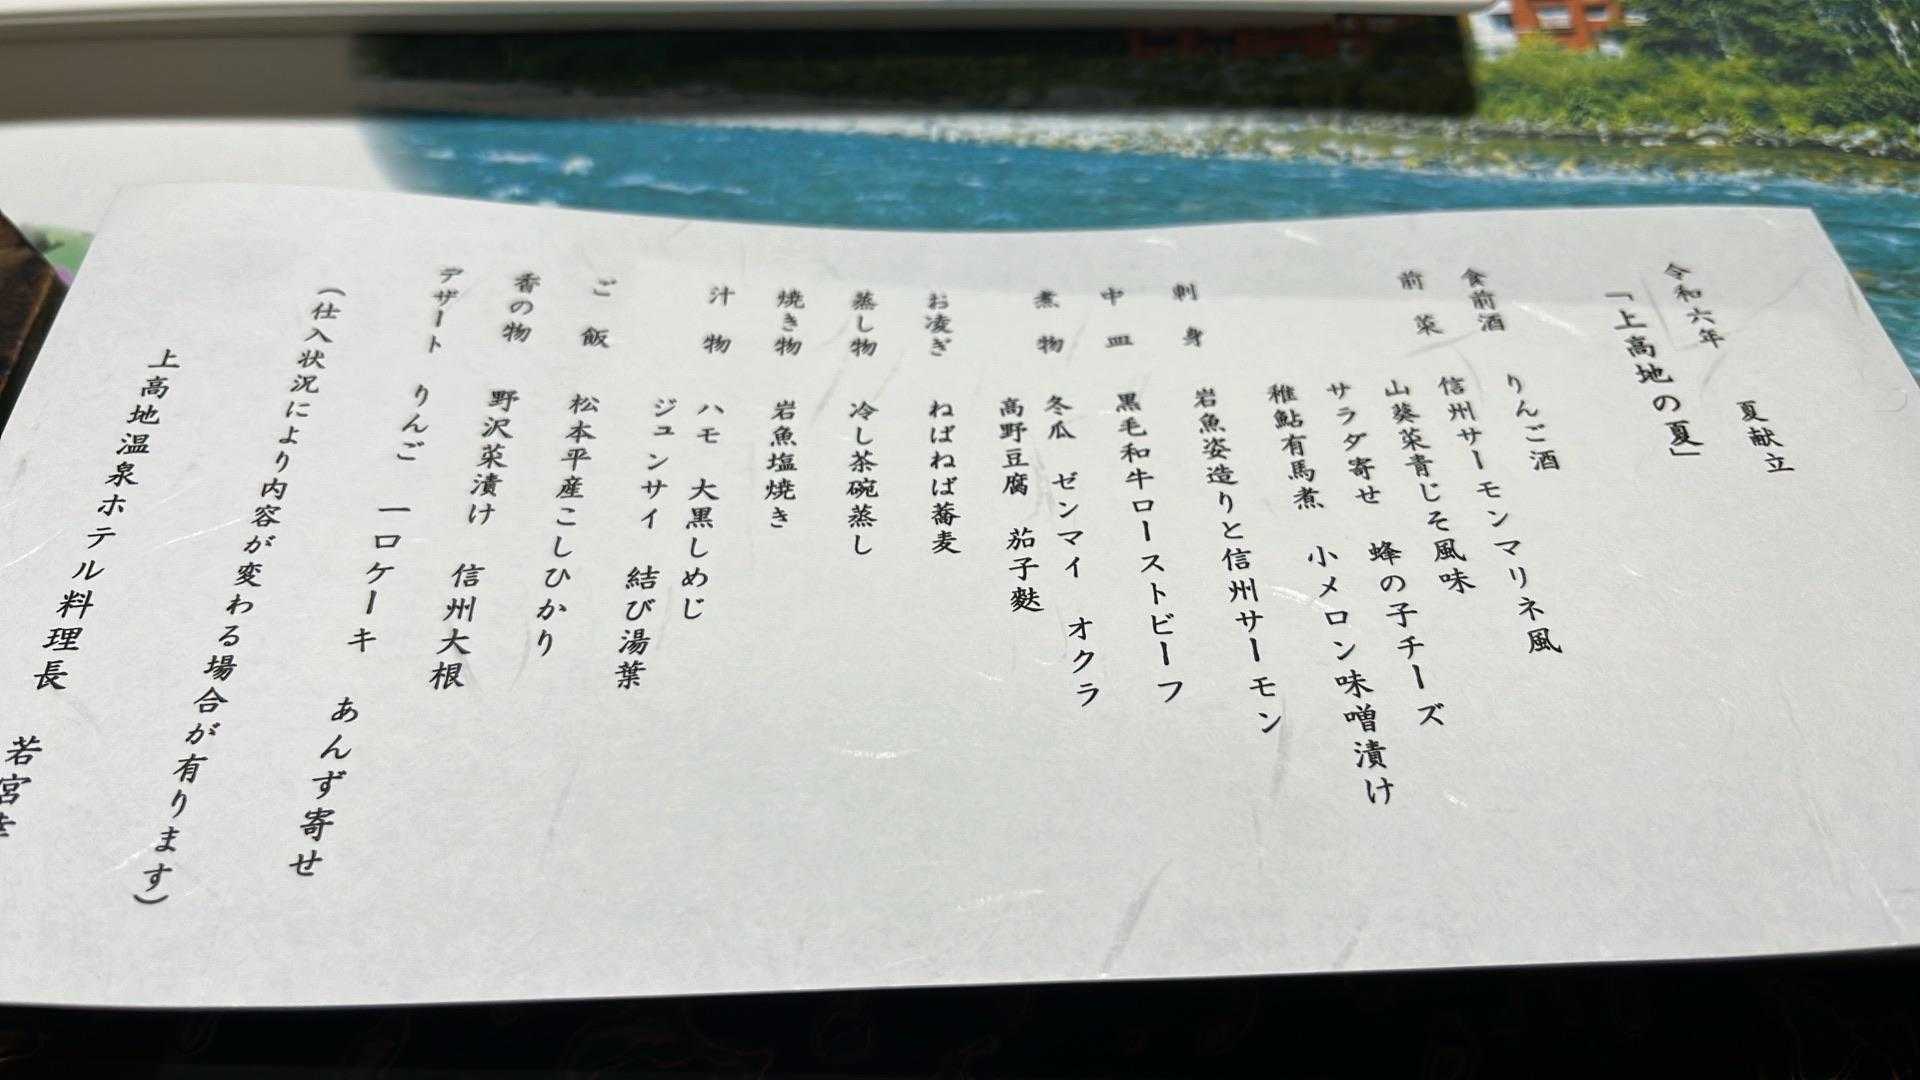 夏献立
令和六年
「上高地の夏」
食前酒 りんご酒
前菜 信州サーモンマリネ風
山葵菜青じそ風味
サラダ寄せ 蜂の子チーズ
稚鮎有馬煮 小メロン味噌漬け
刺身 岩魚姿造りと信州サーモン
中皿 黒毛和牛ローストビーフ
煮物 冬瓜 ゼンマイ オクラ
高野豆腐 茄子麩
お凌ぎ ねばねば蕎麦
蒸し物 冷し茶碗蒸し
焼き物 岩魚塩焼き
汁物 ハモ 大黒しめじ
ジュンサイ 結び湯葉
ご飯 松本平産こしひかり
香の物 野沢菜漬け 信州大根
デザート りんご 一口ケーキ あんず寄せ
(仕入状況により内容が変わる場合が有ります)
上高地温泉ホテル料理長 若宮